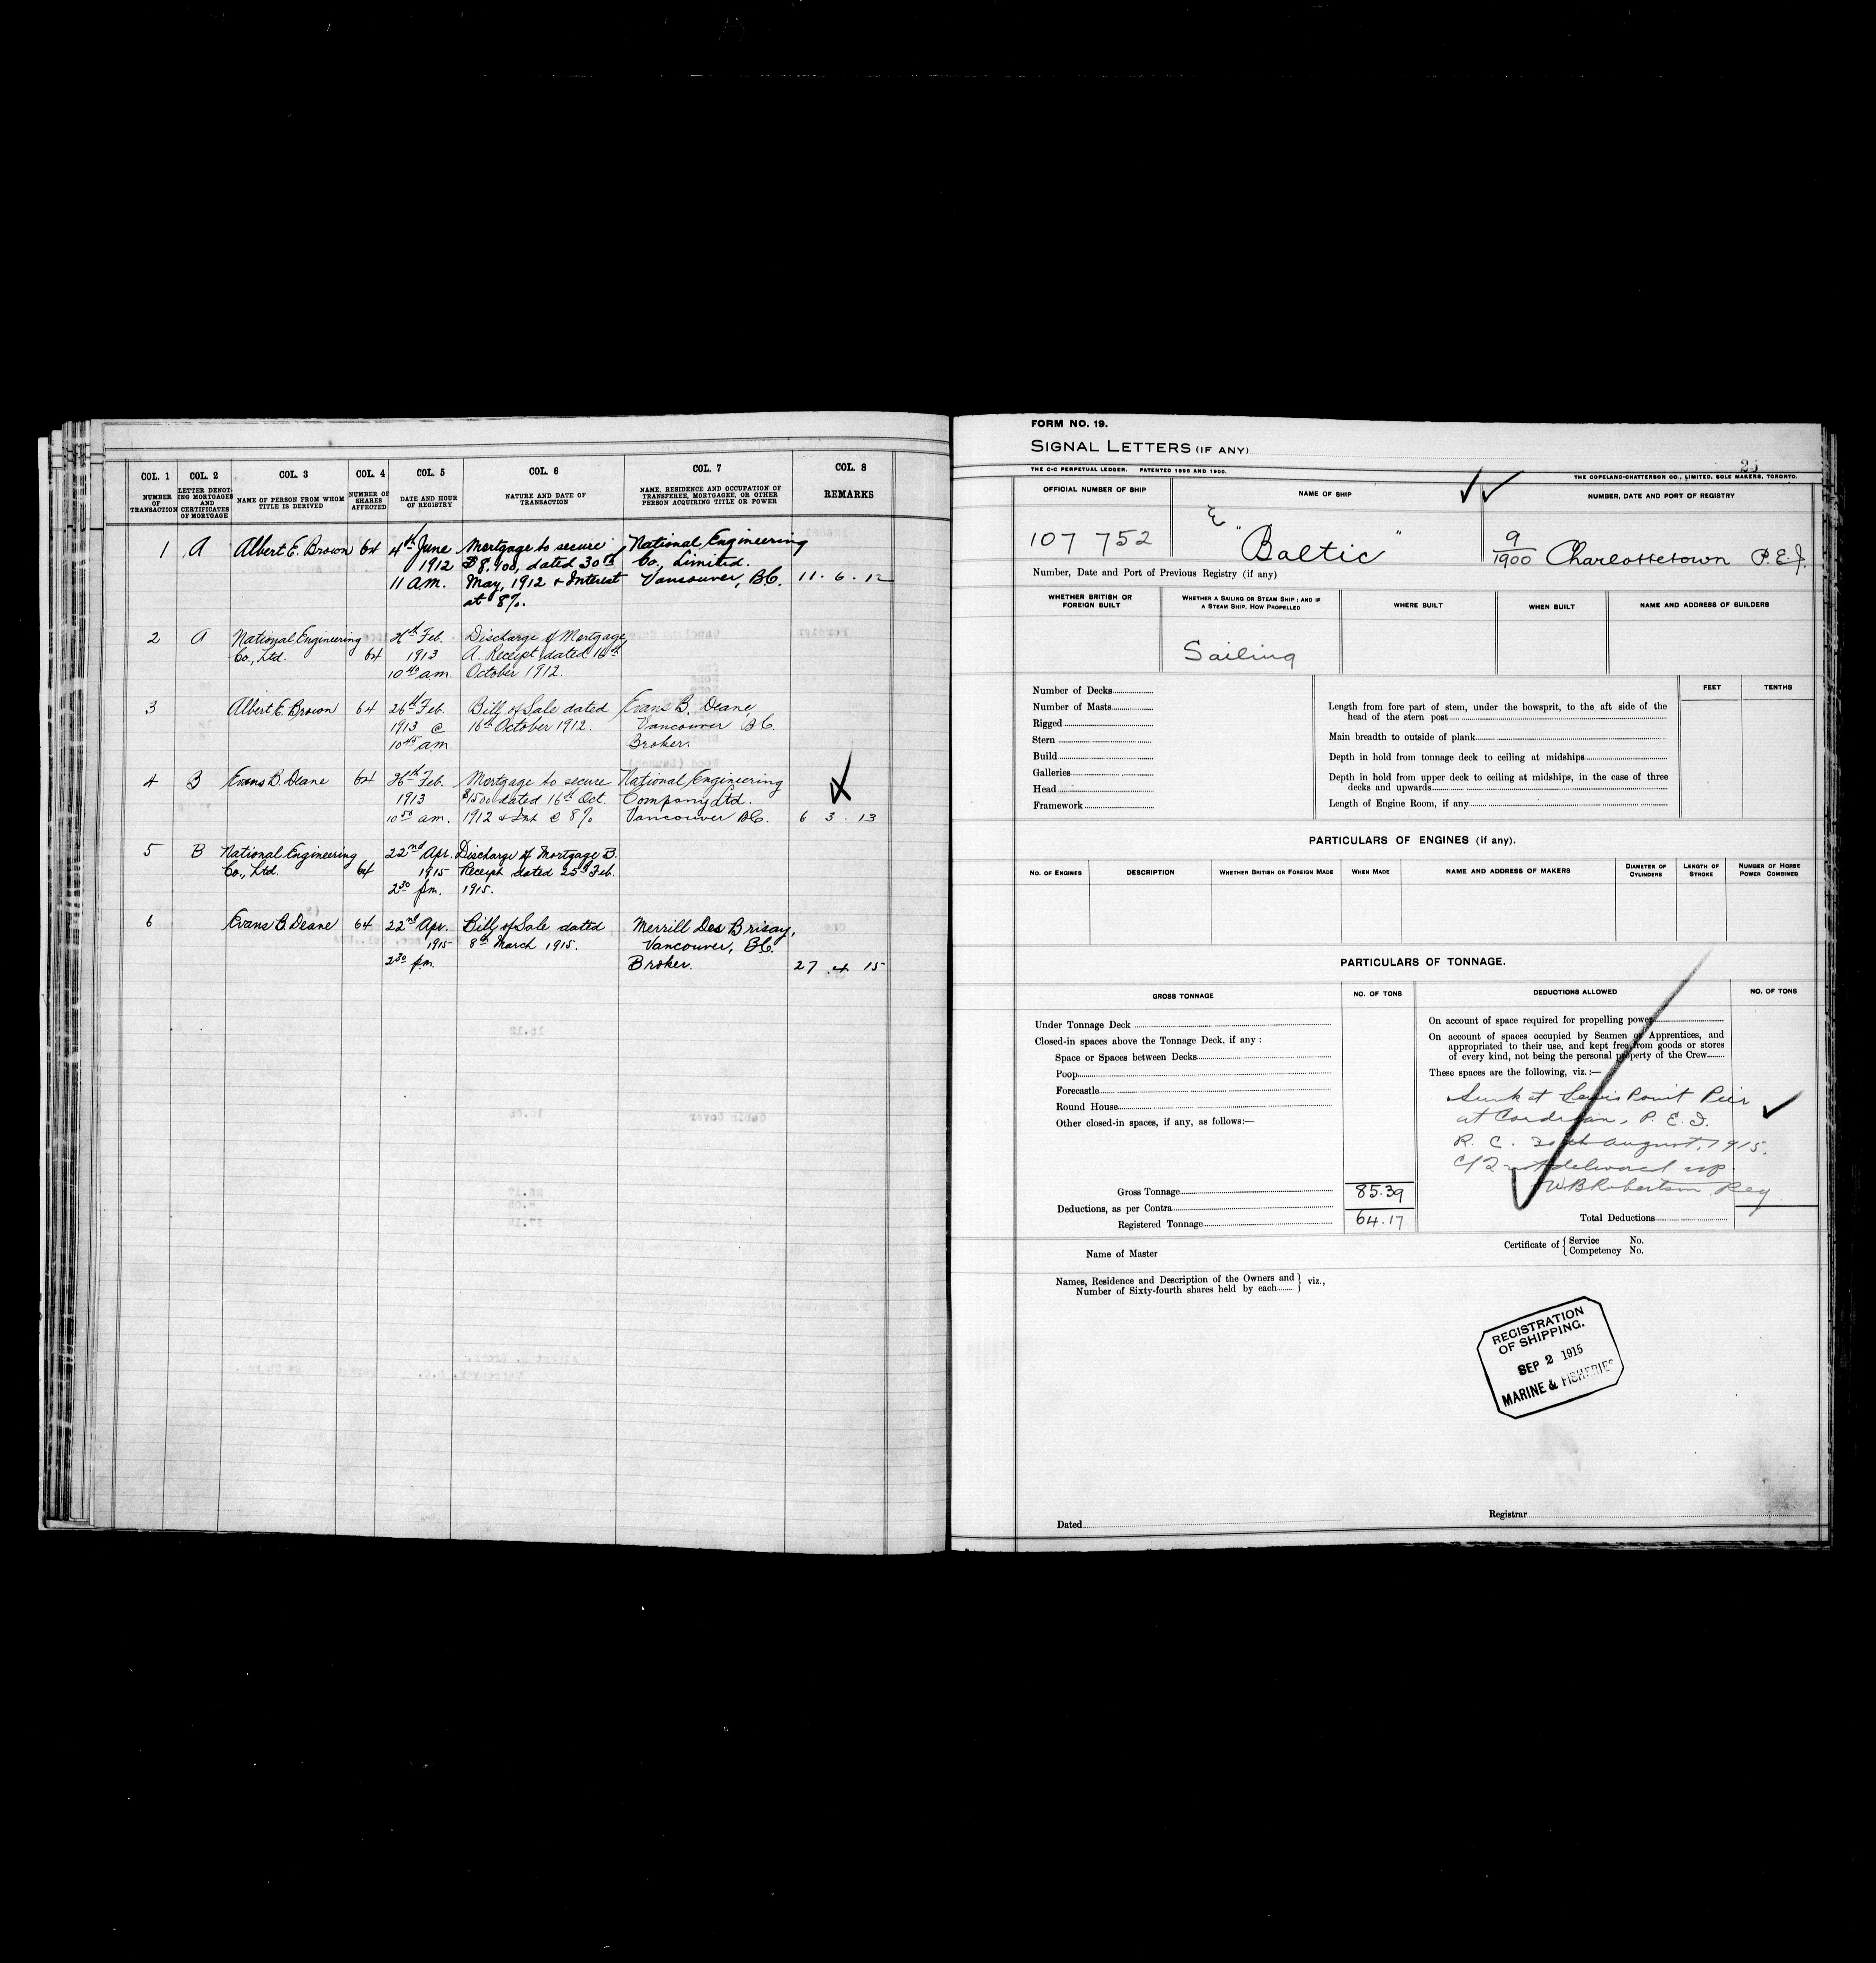 COL. 1 COL. 2 COL. 3 COL. 4 COL. 5 COL. 6 COL. 7 COL. 8
NUMBER OF TRANSACTION
LETTER DENOTING MORTGAGES AND CERTIFICATES OF MORTGAGE
NAME OF PERSON FROM WHOM TITLE IS DERIVED
NUMBER OF SHARES AFFECTED
DATE AND HOUR OF REGISTRY
NATURE AND DATE OF TRANSACTION
NAME, RESIDENCE AND OCCUPATION OF TRANSFEREE, MORTGAGEE, OR OTHER PERSON ACQUIRING TITLE OR POWER
REMARKS
1 A Albert E. Brown 64 4th June Mortgage to secure National Engineering
1912 $8,900, dated 30th Co., Limited.
11 a.m. May, 1912 & Interest Vancouver, B.C. 11. 6. 12
at 8%.
2 A National Engineering 26th Feb. Discharge of Mortgage
Co., Ltd. 64 1913 A. Receipt dated 16th
10 40 am October 1912.
3 Albert E. Brown 64 26th Feb. Bill of Sale dated Evans B. Deane
1913 @ 16th October 1912. Vancouver B.C.
10 45 am. Broker.
4 B Evans B. Deane 64 26th Feb. Mortgage to secure National Engineering
1913 $1500 dated 16th Oct. Company Ltd.
10 50 am. 1912 & Int @ 8% Vancouver B.C. 6 3. 13
5 B National Engineering 22nd Apr. Discharge of Mortgage B.
Co., Ltd. 64 1915 Receipt dated 25th Feb.
2 30 pm. 1915.
6 Evans B. Deane 64 22nd Apr. Bill of Sale dated Merrill Des Brisay,
1915 8th March 1915. Vancouver, B.C.
2 30 pm. Broker. 27. 4 15
FORM NO. 19.
SIGNAL LETTERS (IF ANY)
THE C-C PERPETUAL LEDGER. PATENTED 1896 AND 1900. THE COPELAND-CHATTERSON CO., LIMITED, SOLE MAKERS, TORONTO.
OFFICIAL NUMBER OF SHIP NAME OF SHIP NUMBER, DATE AND PORT OF REGISTRY
107 752 "Baltic" 9/1900 Charlottetown P.E.I.
Number, Date and Port of Previous Registry (if any)
WHETHER BRITISH OR FOREIGN BUILT
WHETHER A SAILING OR STEAM SHIP; AND IF A STEAM SHIP, HOW PROPELLED
WHERE BUILT WHEN BUILT NAME AND ADDRESS OF BUILDERS
Sailing
FEET TENTHS
Number of Decks
Number of Masts
Rigged
Stern
Build
Galleries
Head
Framework
Length from fore part of stem, under the bowsprit, to the aft side of the
head of the stern post
Main breadth to outside of plank
Depth in hold from tonnage deck to ceiling at midships
Depth in hold from upper deck to ceiling at midships, in the case of three
decks and upwards
Length of Engine Room, if any
PARTICULARS OF ENGINES (if any).
NO. OF ENGINES DESCRIPTION WHETHER BRITISH OR FOREIGN MADE WHEN MADE NAME AND ADDRESS OF MAKERS DIAMETER OF CYLINDERS LENGTH OF STROKE NUMBER OF HORSE POWER COMBINED
PARTICULARS OF TONNAGE.
GROSS TONNAGE NO. OF TONS DEDUCTIONS ALLOWED NO. OF TONS
Under Tonnage Deck
Closed-in spaces above the Tonnage Deck, if any:
Space or Spaces between Decks
Poop
Forecastle
Round House
Other closed-in spaces, if any, as follows:—
Gross Tonnage 85.39
Deductions, as per Contra
Registered Tonnage 64.17
On account of space required for propelling power
On account of spaces occupied by Seamen or Apprentices, and
appropriated to their use, and kept free from goods or stores
of every kind, not being the personal property of the Crew
These spaces are the following, viz.:—
Sunk at Lewis Point Pier
at Cardigan, P. E. I.
R. C. 20th August, 1915.
not delivered up.
W B Robertson Reg
Total Deductions
Name of Master
Certificate of { Service No.
Competency No.
Names, Residence and Description of the Owners and } viz.,
Number of Sixty-fourth shares held by each
REGISTRATION
OF SHIPPING.
SEP 2 1915
MARINE & FISHERIES
Dated Registrar